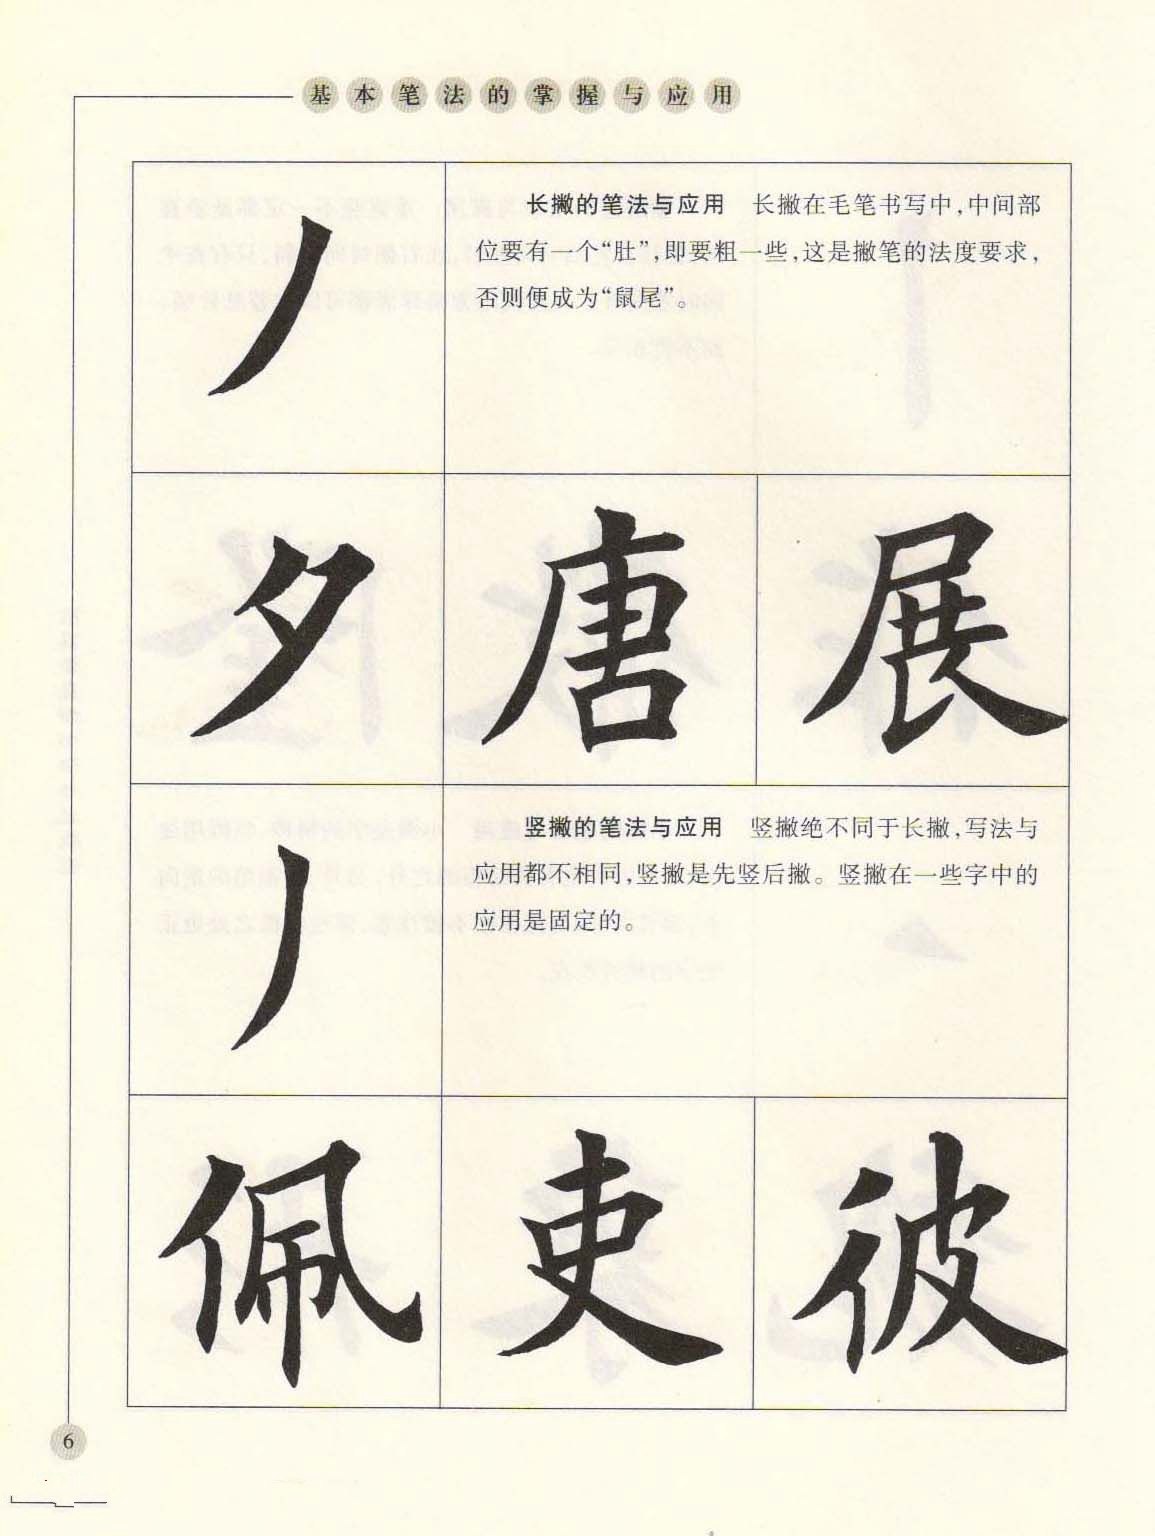 基本笔法的掌握与应用
长撇的笔法与应用　长撇在毛笔书写中，中间部
位要有一个“肚”，即要粗一些，这是撇笔的法度要求，
否则便成为“鼠尾”。
丿
夕 唐 展
竖撇的笔法与应用　竖撇绝不同于长撇，写法与
应用都不相同，竖撇是先竖后撇。竖撇在一些字中的
应用是固定的。
丿
佩 吏 彼
6